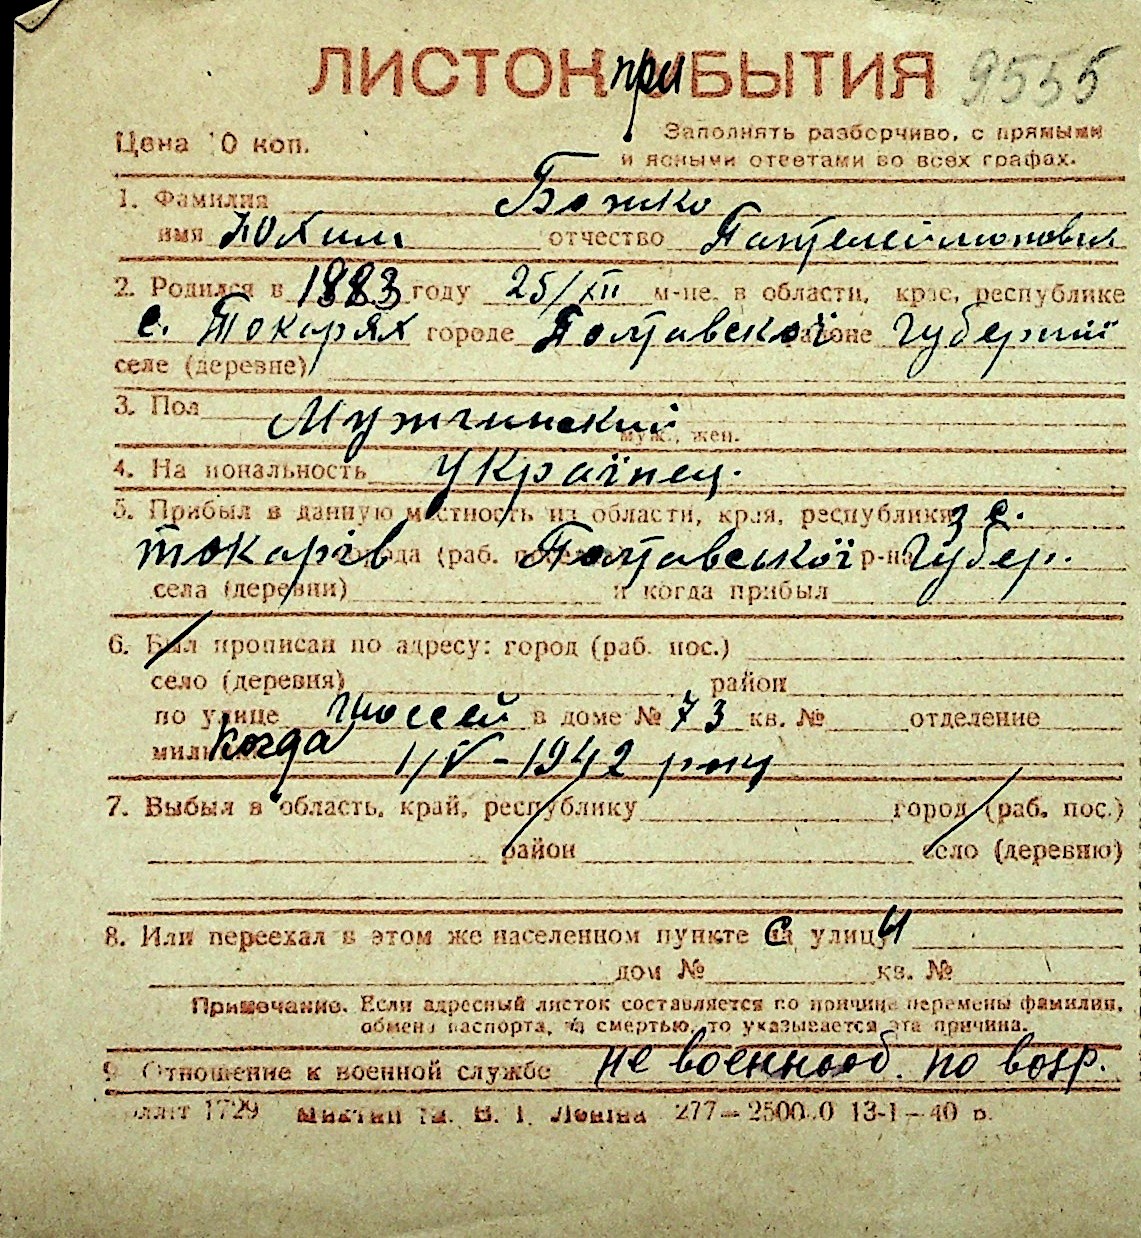 ЛИСТОК при БЫТИЯ 9555
Цена 10 коп. Заполнять разборчиво, с прямыми
и ясными ответами во всех графах.
1. Фамилия Божко
имя Юхим отчество Пантелеймонович
2. Родился в 1883 году 25/XII м-це, в области, крае, республике
с. Токарях городе Полтавской районе губернії
селе (деревне)
3. Пол Мужчинский
муж., жен.
4. Национальность Українец.
5. Прибыл в данную местность из области, края, республики з с.
Токарів города (раб. Полтавської р-на Губер.
села (деревни) и когда прибыл
6. Был прописан по адресу: город (раб. пос.)
село (деревня) район
по улице Шоссей в доме № 73 кв. № отделение
Когда 1/V - 1942 року
7. Выбыл в область, край, республику город (раб. пос.)
район село (деревню)
8. Или переехал в этом же населенном пункте с улицы
дом № кв. №
Примечание. Если адресный листок составляется по причине перемены фамилии,
обмена паспорта, за смертью, то указывается эта причина.
9. Отношение к военной службе не военнооб. по возр.
1729 В. І. Леніна 277—2500.0 13-1—40 р.